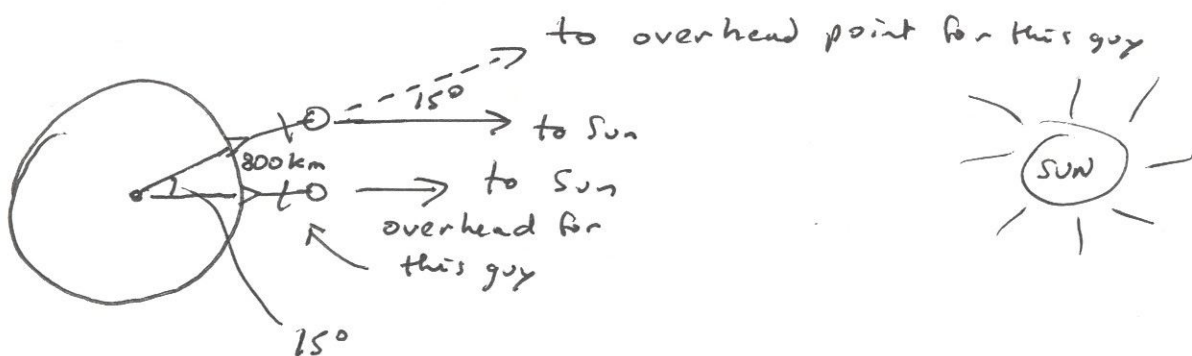 to overhead point for this guy
15°
to Sun
800km
to Sun
SUN
overhead for
this guy
15°